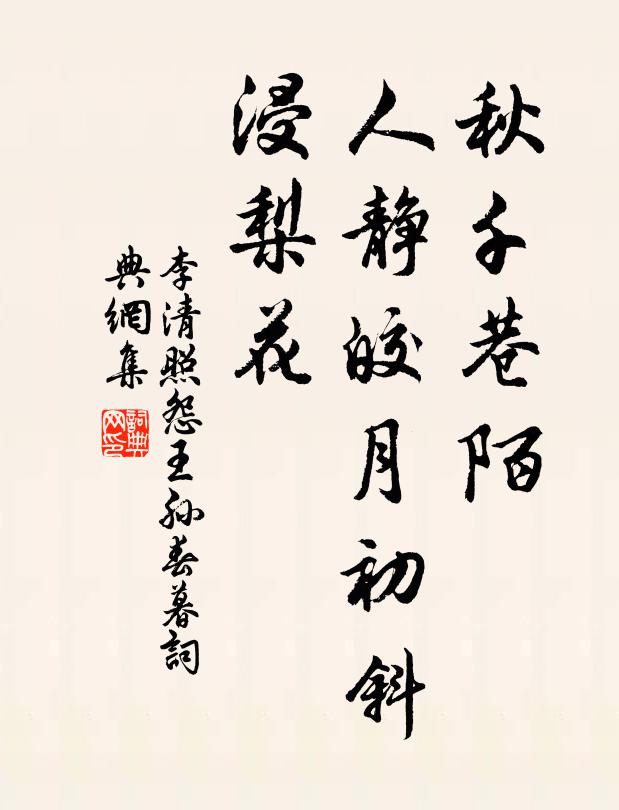 秋千巷陌
人静皎月初斜
浸梨花
李清照怨王孙春暮詞
典網集
詞典网印